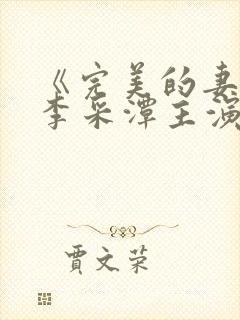 《完美的妻
李采潭主演
贾文荣